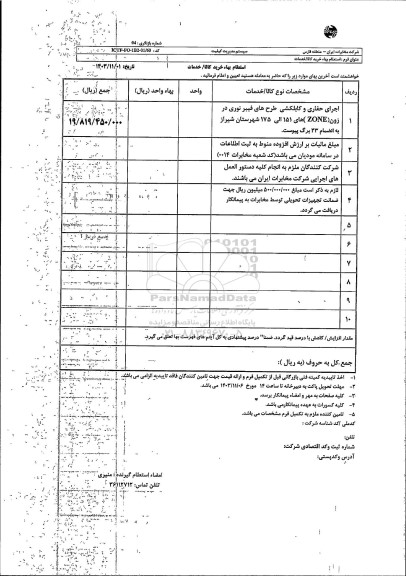 شرکت مخابرات ایران - منطقه فارس
سیستم مدیریت کیفیت
شماره بازنگری: 04
عنوان فرم: استعلام بهاء خرید کالا/خدمات
استعلام بهاء خرید کالا/ خدمات
تاریخ: ۱۴۰۳/۱۱/۰۱
خواهشمند است آخرین بهای موارد زیر را که حاضر به معامله هستید تعیین و اعلام فرمائید.
ردیف
مشخصات نوع کالا/خدمات
واحد
بهاء واحد (ریال)
جمع (ریال)
۱
اجرای حفاری و کابلکشی طرح های فیبر نوری در
زون(ZONE) های ۱۵۱ الی ۱۷۵ شهرستان شیراز
به انضمام ۲۳ برگ پیوست.
۱۹/۸۱۹/۴۵۰/۰۰۰
۲
مبلغ مالیات بر ارزش افزوده منوط به ثبت اطلاعات
در سامانه مودیان می باشد(کد شعبه مخابرات ۰۰۱۴)
۳
شرکت کنندگان ملزم به انجام کلیه دستور العمل
های اجرایی شرکت مخابرات ایران می باشند.
۴
لازم به ذکر است مبلغ ۵۰۰/۰۰۰/۰۰۰ میلیون ریال جهت
ضمانت تجهیزات تحویلی توسط مخابرات به پیمانکار
دریافت می گردد.
۵
۶
۷
۸
۹
۱۰
ParsNamadData
پایگاه اطلاع رسانی مناقصه و مزایده
مقدار افزایش/ کاهش با درصد قید گردد. ضمنا" درصد پیشنهادی به کل آیتم های فهرست بها تعلق می گیرد.
جمع کل به حروف (به ریال):
۱- اخذ تاییدیه کمیته فنی بازرگانی قبل از تکمیل فرم و ارائه قیمت جهت تامین کنندگان فاقد تاییدیه الزامی می باشد.
۲- مهلت تحویل پاکت به دبیرخانه تا ساعت ۱۴ مورخ ۱۴۰۳/۱۱/۰۶ می باشد.
۳- کلیه صفحات به مهر و امضاء پیمانکار برسد.
۴- کلیه کسورات به عهده پیمانکار می باشد.
۵- تامین کننده ملزم به تکمیل فرم مشخصات می باشد.
کدملی /کد شناسه شرکت:
تلفن:
شماره ثبت وکد اقتصادی شرکت:
آدرس وکدپستی:
امضاء استعلام گیرنده: منیری
تلفن تماس: ۳۶۱۱۲۷۱۲